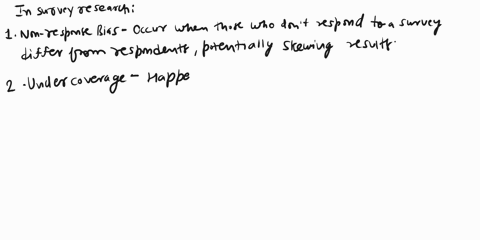 In survey research:
1. Non-response Bias - Occur when those who don't respond to a survey
differ from respondents, potentially skewing results.
2. Undercoverage - Happe